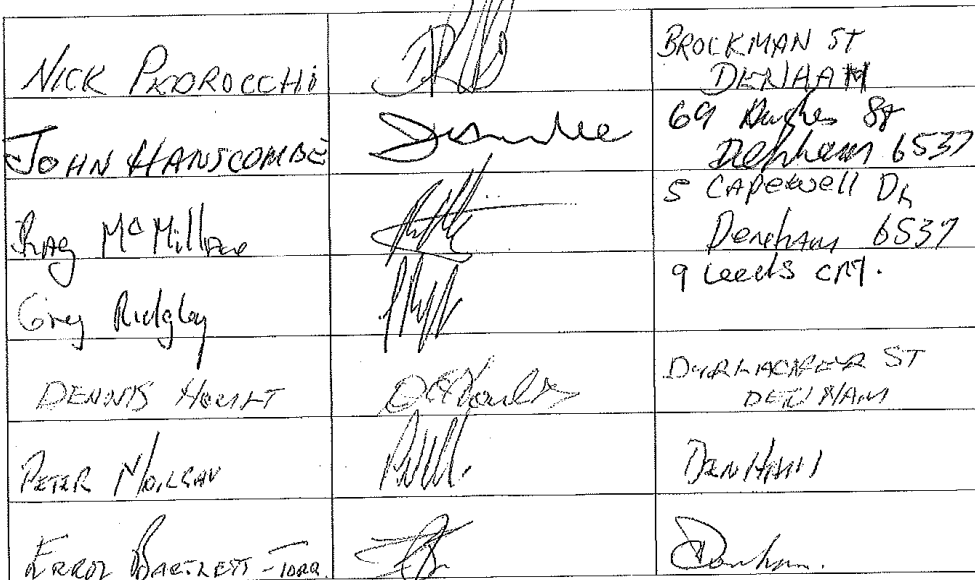 NICK PEDROCCHI BROCKMAN ST
DENHAM
JOHN HANSCOMBE 69 Hughes St
Denham 6537
Mc Millan 5 CAPewell Dr
Denham 6537
Greg Ridgley 9 Leeds CRT.
DENNIS HOULT DURLACHER ST
DENHAM
PETER DENHAM
ERROL BARTLETT - Denham.